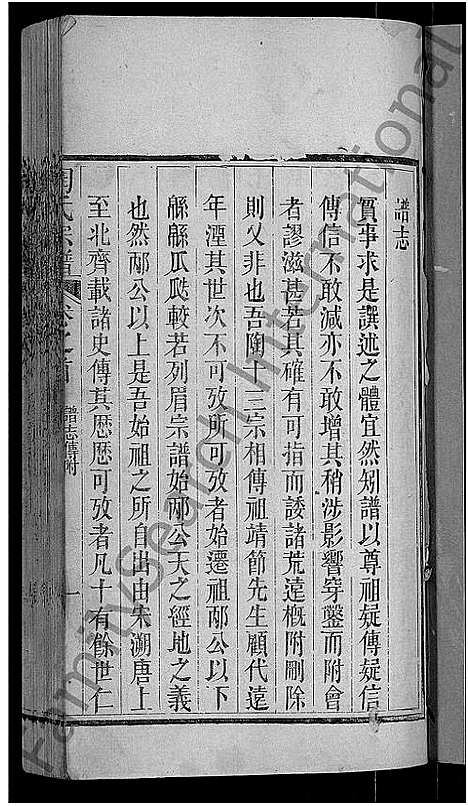 譜志
實事求是譔述之體宜然矧譜以尊祖疑傳疑信
傳信不敢減亦不敢增其稍涉影響穿鑿而附會
者謬滋甚若其確有可指而諉諸荒遠概附刪除
則又非也吾陶十三宗相傳祖靖節先生顧代遠
年湮其世次不可攷所可攷者始遷祖邴公以下
緜緜瓜瓞較若列眉宗譜始邴公天之經地之義
也然邴公以上是吾始祖之所自出由宋溯唐上
至北齊載諸史傳其歷歷可攷者凡十有餘世仁
氏宗譜 卷之首 譜志舊附 一
FamilySearch International